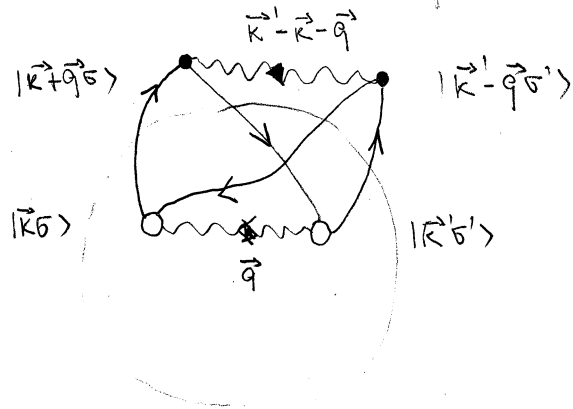 k⃗' - k⃗ - q⃗
|k⃗+q⃗σ⟩
|k⃗'-q⃗σ'⟩
|k⃗σ⟩
|k⃗'σ'⟩
q⃗